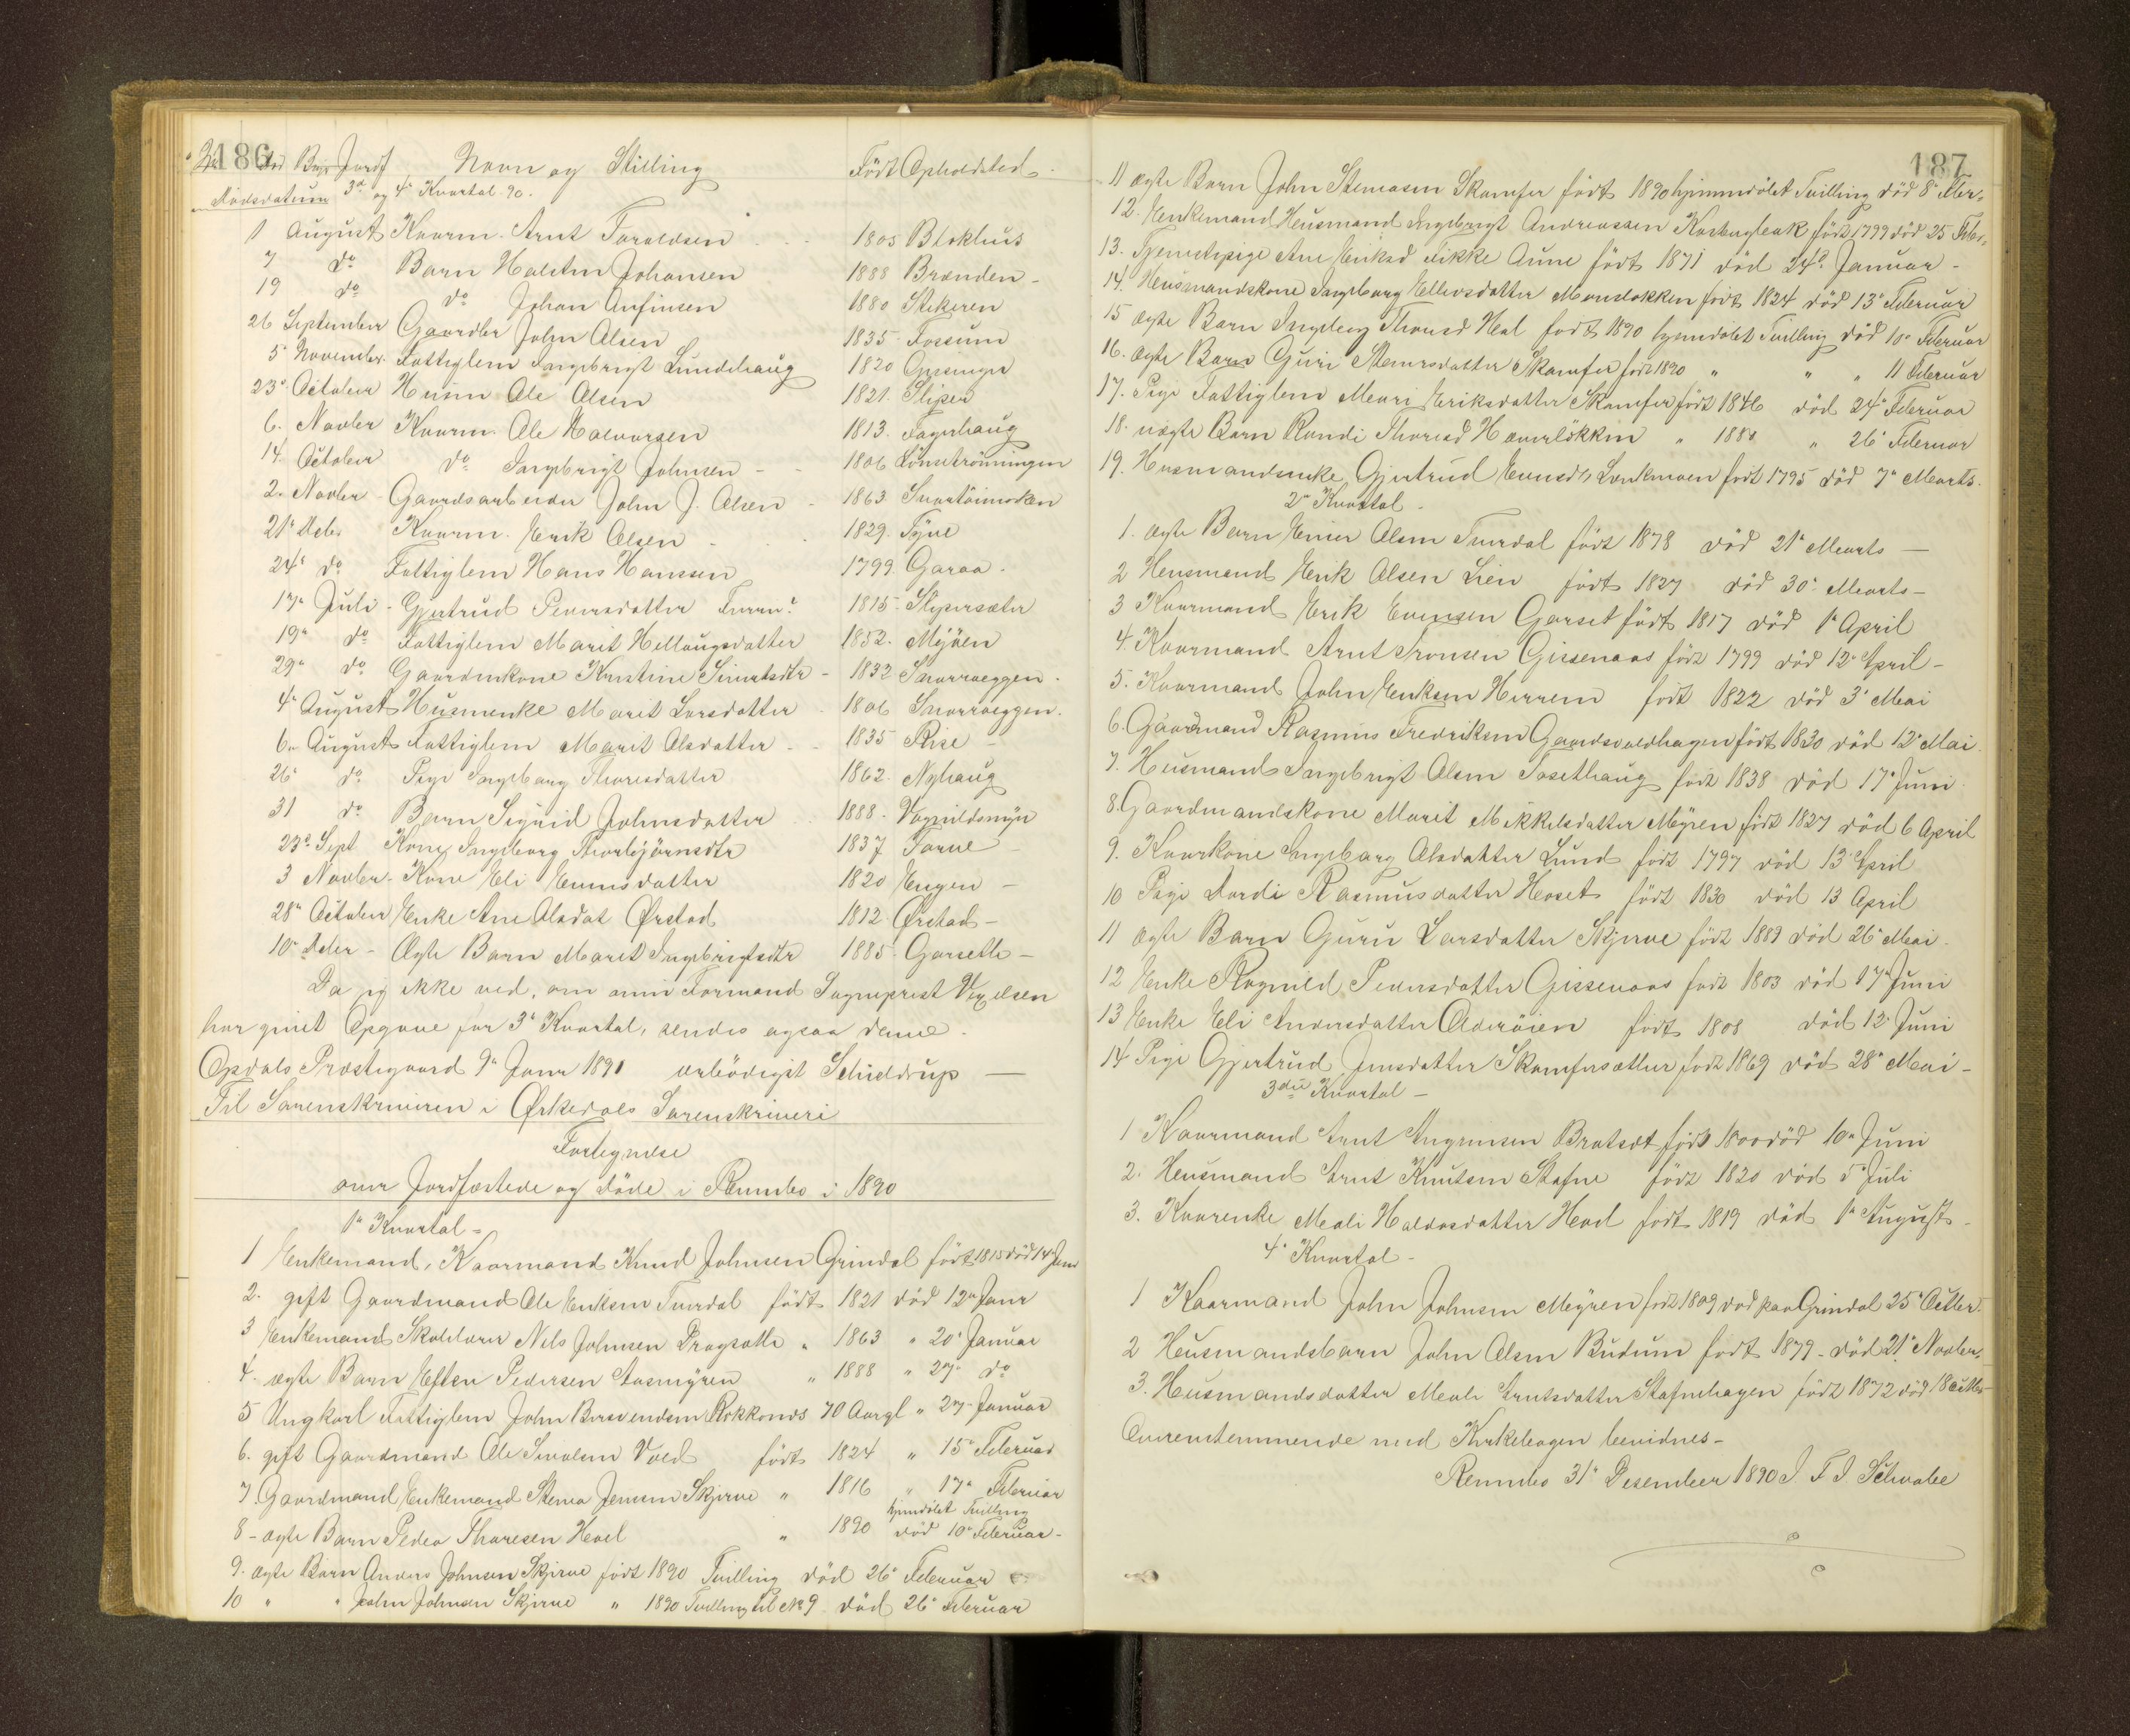 186
Født Opholdsted.
Navn og Stilling
Dødsdatum 3die og 4de Kvartal 90.
1 August Kaarm. Arnt Taraldsen 1805 Blokhus
7 do Barn Halsten Johansen 1888 Brænden
19 do do Johan Anfinsen 1880 Stekeren
26 September Gaardbr John Olsen 1835 Fossum
5 November Fattiglem Ingebrigt Lundehaug 1820
23 October Husm Ole Olsen 1821 Stiper
6. Novbr Kaarm. Ole Halvorsen 1813. Fagerhaug
14. October do Ingebrigt Johnsen 1806 Lønsetrønningen
2. Novbr Gaardsarbeider John J. Olsen 1863
21 Debr. Kaarm. Erik Olsen 1829.
24 do Fattiglem Hans Hansen 1799 Garaa.
17 Juli Gjertrud Pedersdatter 1815 Slipersæter
19 do Fattiglem Marit Hellaugsdatter 1852. Mjøen
29 do Gaardmkone Kirstine Sivertsdtr 1832 Snorroeggen.
4 August Husmenke Marit Larsdatter 1806 Snorroeggen.
6 August Fattiglem Marit Olsdatter 1835 Rise
26 do Pige Ingeborg Thoresdatter 1862. Nyhaug
31 do Barn Sigrid Johnsdatter 1888. Vognildsmyr
23 Sept. Kone Ingeborg Thorbjørnsdtr 1837
3 Novbr. Kone Eli Evensdatter 1820 Engen
28 October Enke Ane Olsdat Ørstad 1812 Ørstad
10 Deber Ægte Barn Marit Ingebrigtsdtr 1885 Garsetli
Da jeg ikke ved, om min Formand Sogneprest Vexelsen
har givet Opgave for 3 Kvartal, sendes ogsaa denne.
Opdals Præstegaard 9 Janr 1891 ærbødigst Schieldrup
Til Sorenskriveren i Ørkedals Sorenskriveri
Fortegnelse
over Jordfæstede og døde i Rennebo i 1890
1 Kvartal
1 Enkemand, Kaarmand Knud Johnsen Grindal født 1815 død 14 Janr
2. gift Gaardmand Ole Eriksen Turdal født 1821 død 12 Janr
3 Enkemand Skolelærer Nils Johnsen Dragsetli " 1863 " 20 Januar
4. ægte Barn Esten Pedersen Aasmyren " 1888 " 27 do
5 Ungkarl Fattiglem John Bersvendsen Rokkones 70 Aargl " 27 Januar
6. gift Gaardmand Ole Sivelsen Vold født 1824 " 15 Februar
7. Gaardmand Enkemand Stener Jensen Skjerve " 1816 " 17 Februar
8 ægte Barn Peder Thoresen Hevel " 1890 hjemdøbt Tvilling død 10 Februar
9. ægte Barn Anders Johnsen Skjerve født 1890 Tvilling død 26 Februar
10 " " John Johnsen Skjerve " 1890 Tvilling til No 9 død 26 Februar
187
11 ægte Barn John Stenersen Skamfer født 1890 hjemmedøbt Tvilling død 8 Febr.
12. Enkemand Husmand Ingebrigt Andreassen født 1799 død 25 Febr.
13. Tjenestepige Ane Eriksd Aune født 1871 død 24 Januar
14. Husmandskone Ingeborg Ellevsdatter født 1824 død 13 Februar
15 ægte Barn Ingeborg Thoresd Hevel født 1890 hjemdøbt Tvilling død 10 Februar
16. ægte Barn Guri Stenersdatter Skamfer født 1890 " " " 11 Februar
17. Pige Fattiglem Mari Eriksdatter Skamfer født 1846 død 24 Februar
18. uægte Barn Randi Thoresd Haverløkken " 1880 " 26 Februar
19. Husmandsenke Gjertrud Evensdtr født 1795 død 7 Marts.
2 Kvartal.
1. ægte Barn Einer Olsen Turdal født 1878 død 21 Marts
2 Husmand Erik Olsen Lien født 1827 død 30 Marts
3 Kaarmand Erik Evensen Garset født 1817 død 1 April
4. Kaarmand Arnt Aronsen Gissenaas født 1799 død 12 April
5. Kaarmand John Eriksen Herrem født 1822 død 3 Mai
6. Gaardmand Rasmus Fredriksen Gaardsvoldhagen født 1830 død 12 Mai.
7. Husmand Ingebrigt Olsen Tosethaug født 1838 død 17 Juni
8. Gaardmandskone Marit Mikkelsdatter Myren født 1827 død 6 April
9. Kaarkone Ingeborg Olsdatter Lund født 1797 død 13 April
10 Pige Dordi Rasmusdatter Hevset født 1830 død 13 April
11 ægte Barn Guru Larsdatter Skjerve født 1889 død 26 Mai
12 Enke Ragnild Pedersdatter Gissenaas født 1803 død 17 Juni
13 Enke Eli Andersdatter født 1808 død 12 Juni
14 Pige Gjertrud Jensdatter Skamfersætter født 1869 død 28 Mai
3die Kvartal
1 Kaarmand Arnt Ingrimsen Bratset født 1800 død 10 Juni
2. Husmand Arnt Knutsen Stafne født 1820 død 5 Juli
3. Kaarenke Mali Haldosdatter Hevel født 1819 død 1 August
4 Kvartal
1 Kaarmand John Johnsen Myren født 1809 død paa Grindal 25 Octber.
2 Husmandsbarn John Olsen Budum født 1879 død 21 Novber.
3. Husmandsdatter Mali Arntsdatter Stafnehagen født 1872 død 18 Octber
Overenstemmende med Kirkebogen bevidnes
Rennebo 31 Desember 1890 J. F. J. Schwabe